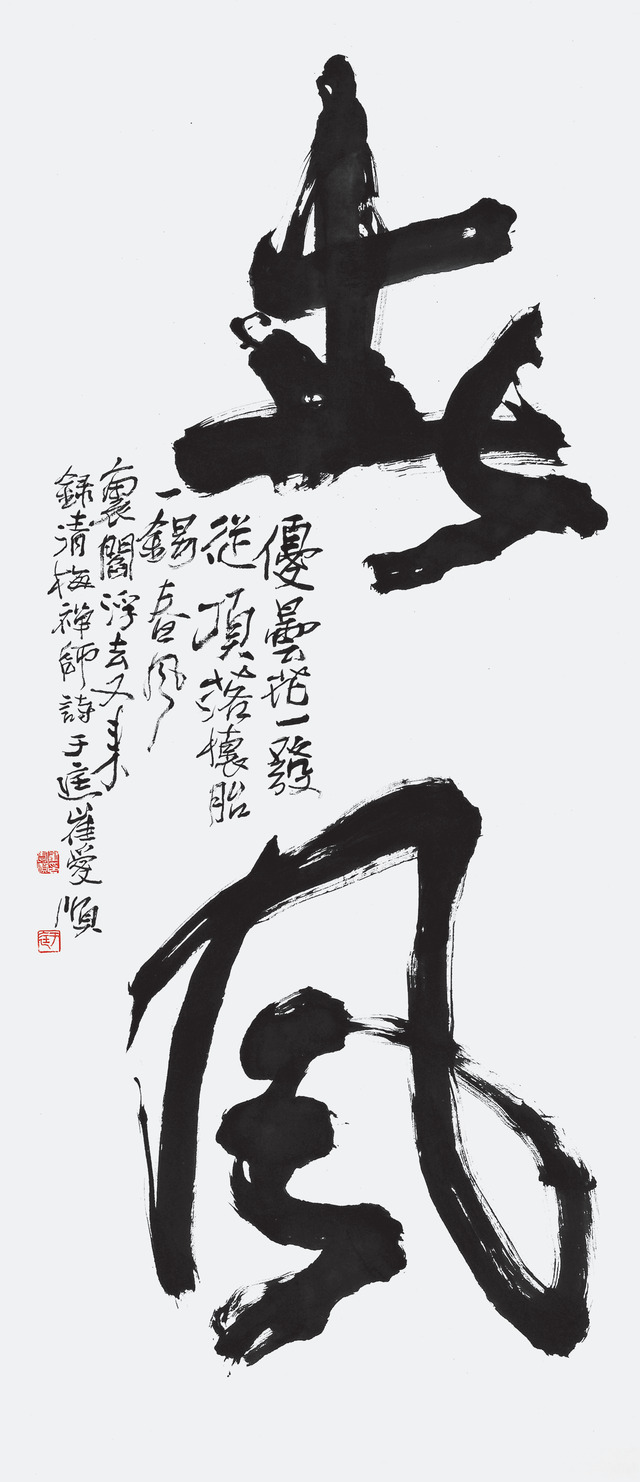 春風
優曇花一發
從頂落懷胎
一錫春風
裏閻浮去又来
録清梅禅師詩于庭崔愛順